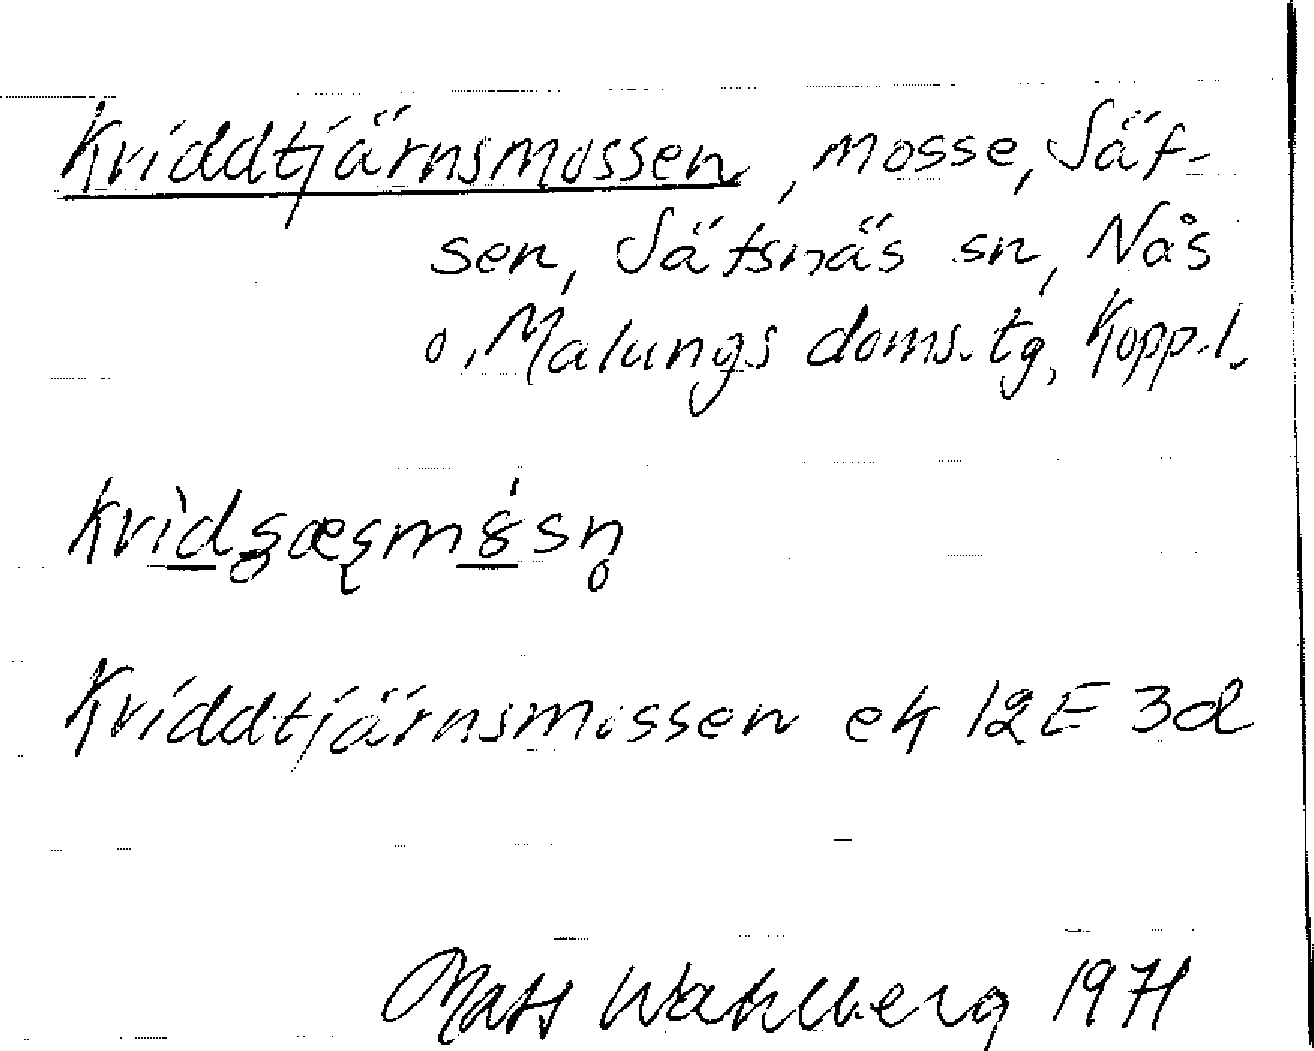 Kriddtjärnsmossen, mosse, Säf-
sen, Säfsnäs sn, Nås
o. Malungs doms. tg, Kopp. l.
Kriddtjärnsmossen ek 12E 3d
Mats Wahlberg 1971